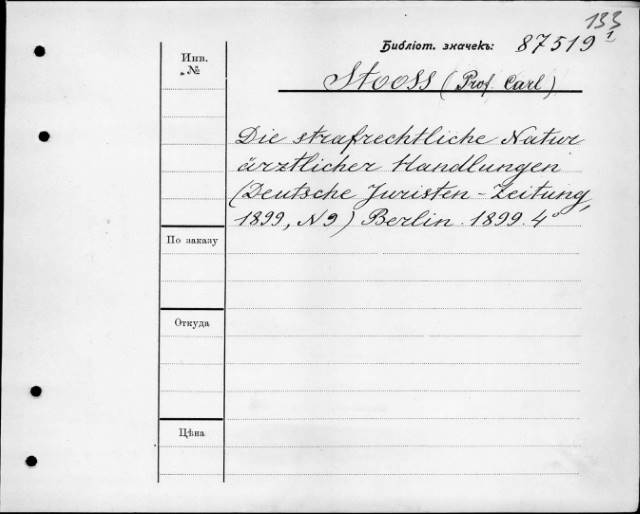 133
Библіот. значекъ: 87519¹
Инв. №
Stooss (Prof. Carl)
Die strafrechtliche Natur
ärztlicher Handlungen
(Deutsche Juristen-Zeitung,
1899, N 9) Berlin. 1899. 4°
По заказу
Откуда
Цѣна